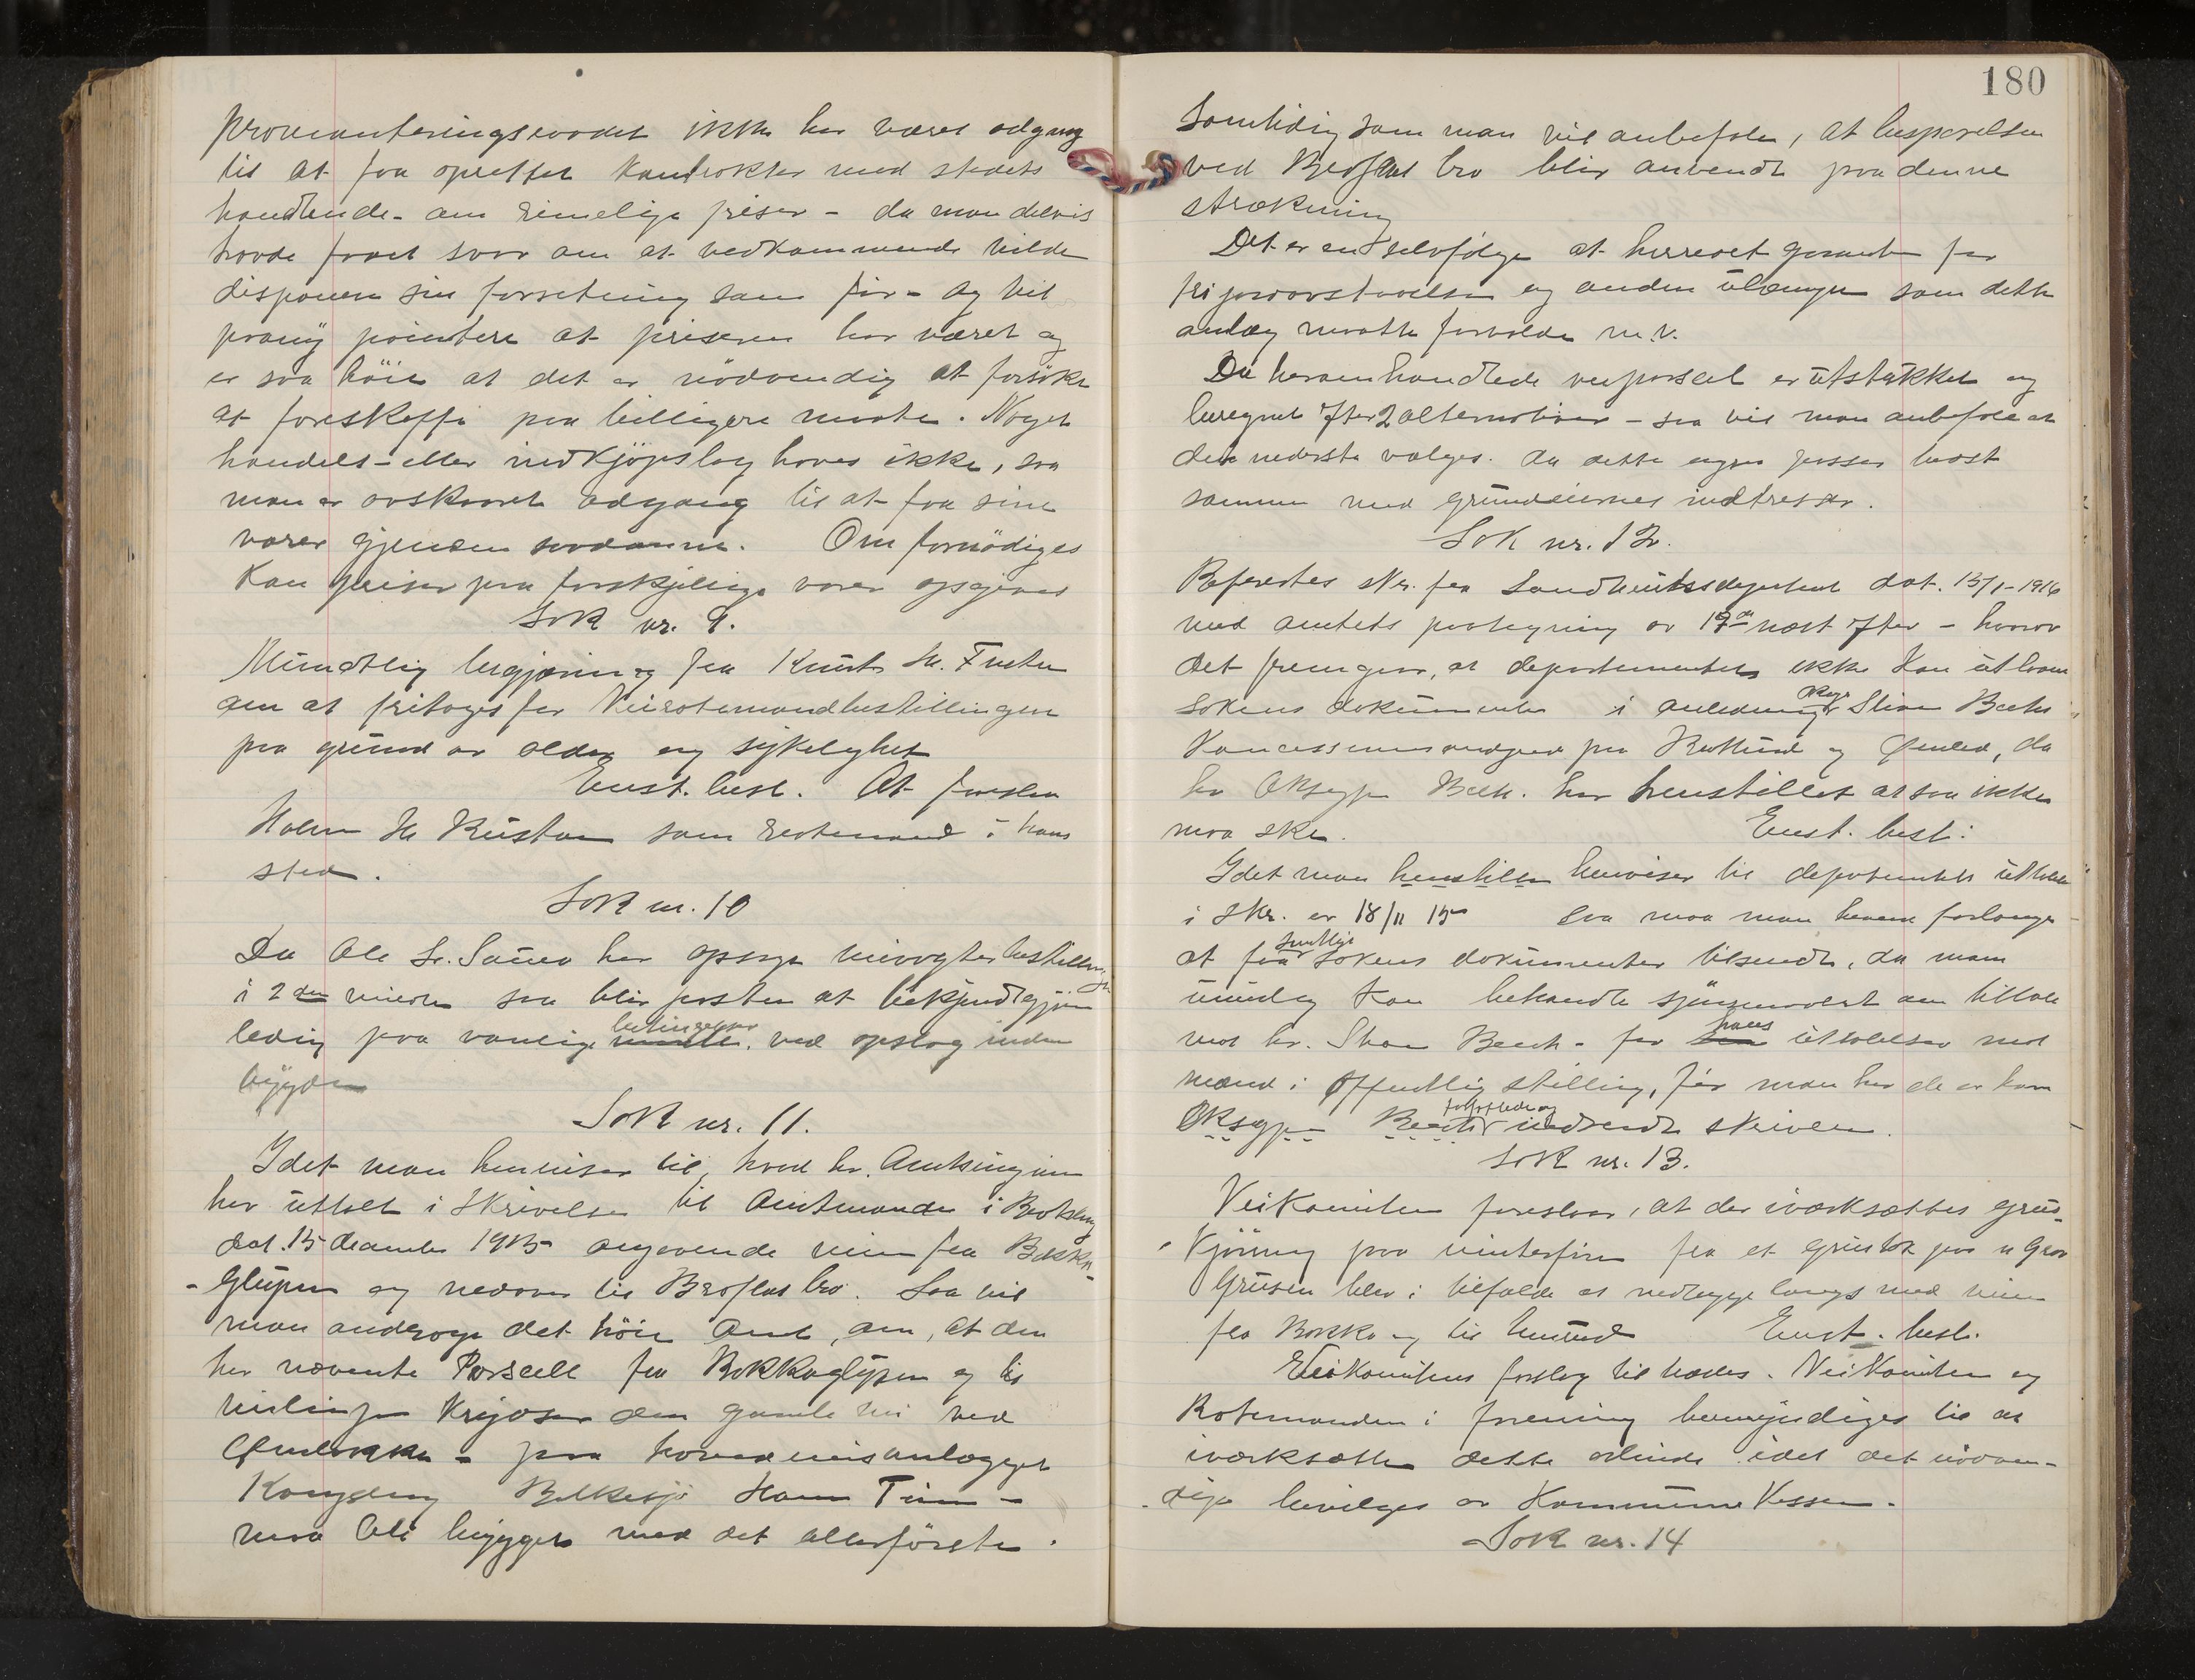 provianteringsraadet ikke har været adgang
til at faa oprettet kontrakter med stedets
handlende - om rimelige priser - da man delvis
havde faaet svar om at vedkommende vilde
disponere sin forretning som før - og vil
paany pointere at priserne har været og
er saa høie at det er nødvendig at forsøke
at fremskaffe paa billigere maate. Noget
handels- eller indkjøpslag haves ikke, saa
man er avskaaret adgang til at faa sine
varer gjennem saadanne. Om fornødiges
kan priser paa forskjellige varer opgives
Sak nr. 9.
Mundtlig begjæring fra Knut H.
om at fritages for Veirotemandbestillingen
paa grund av alder og sykelighet
Enst. besl. At foreslaa
Halvor H. som rotemand i hans
sted.
Sak nr. 10
Da Ole S. har opsagt veivogterbestilling
i 2den so blir posten at bekjendtgjøre
ledig paa vanlige betingelser ved opslag inden
bygden
Sak nr. 11.
Idet man henviser til, hvad hr. Amtsingeniøren
har uttalt i skrivelse til Amtmanden i Buskerud
dat. 15 december 1915 angaaende veien fra Bakka-
- Glupen og nedover til Broflat bro. Saa vil
man andrage det høie Amt, om, at den
her nævnte Parsell fra Bakkaglupen og til
veilinjen krysser den gamle vei ved
- paa hovedveisanlægget
Kongsberg Bolkesjø Tinn -
maa bli bygget med det allerførste.
180
Samtidig som man vil anbefale, at besparelsen
ved Broflat bro blir anvendt paa denne
strækning
Det er en selvfølge at herredet garanterer for
fri grundavstaaelse og anden ulempe som dette
anlæg maatte forvolde m.v.
Da heromhandlede veiparsel er utstukket og
beregnet efter 2 alternativer - saa vil man anbefale at
den nederste vælges. da dette ogsaa passer bedst
sammen med grundeiernes interesser.
Sak nr. 12.
Refereertes skr. fra Landbruksdepartementet dat. 13/1-1916
med amtets paategning av 19de næst efter - hvorav
det fremgaar, at departementet ikke kan utlaane
sakens dokumenter i anledning Oksgr. Beck
Koncessionsandragende paa og da
hr. Oksgr. Beck. har henstillet at saa ikke
maa ske. Enst. besl:
Idet man henstiller henviser til departementets uttalelse
i skr. av 18/11 15 saa maa man herved forlange
at faa samtlige sakens dokumenter tilsendt, da man
umulig kan behandle spørsmaalet om tiltale
mot hr. Beck - for hans uttalelser mot
mænd i offentlig stilling, før man har de av ham
Oksgr. Beck forfattede og indsendte skrivelser.
Sak nr. 13.
Veikomiteen foreslaar, at der iværksættes grus-
kjøring paa vinterføre fra et grustak paa
Grusen blev i tilfælde at nedlægge langs med veien
fra Bakka og til Enst. besl.
Veikomiteens forslag tiltrædes. Veikomiteen og
Rotemanden i forening bemyndiges til at
iværksætte dette arbeide idet det nødven-
- dige bevilges av Kommune Kassen.
Sak nr. 14